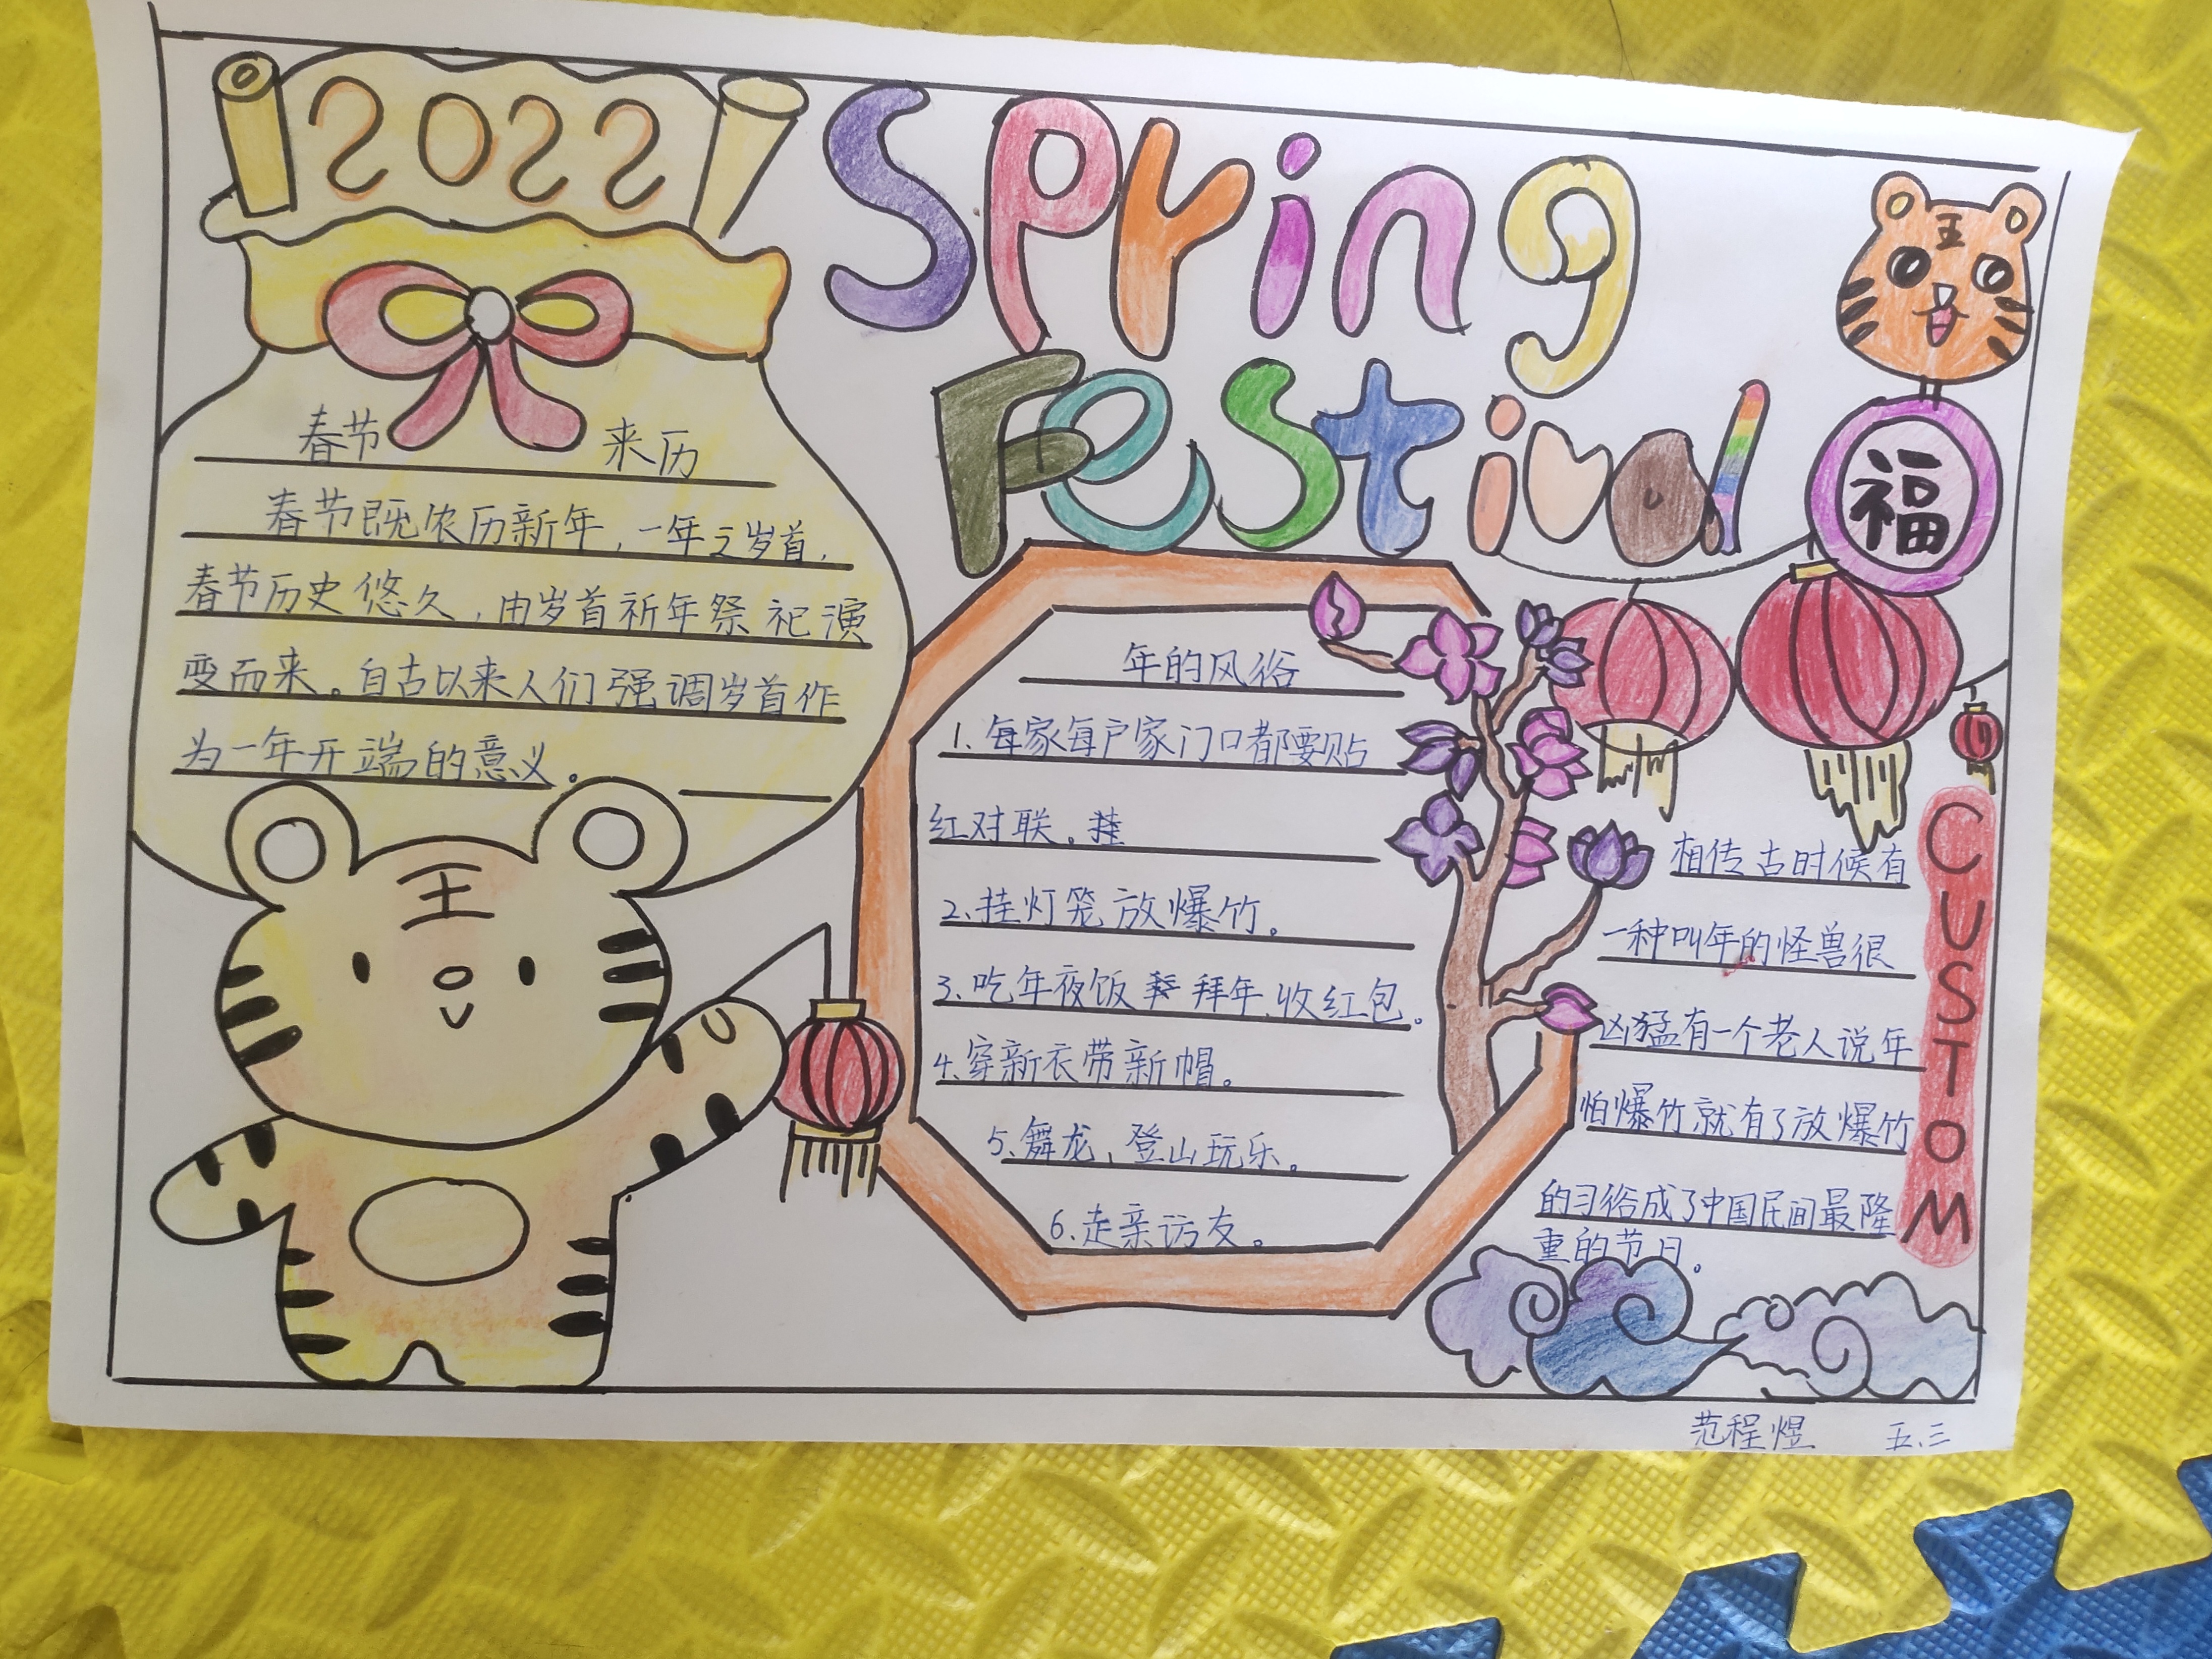 2022
Spring
Festival
王
福
春节 来历
春节既农历新年，一年之岁首，
春节历史悠久，由岁首祈年祭祀演
变而来。自古以来人们强调岁首作
为一年开端的意义。
王
年的风俗
1、每家每户家门口都要贴
红对联。挂
2、挂灯笼放爆竹。
3、吃年夜饭 拜年、收红包。
4、穿新衣带新帽。
5、舞龙、登山玩乐。
6、走亲访友。
CUSTOM
相传古时候有
一种叫年的怪兽很
凶猛有一个老人说年
怕爆竹就有了放爆竹
的习俗成了中国民间最隆
重的节日。
范程煜 五、三